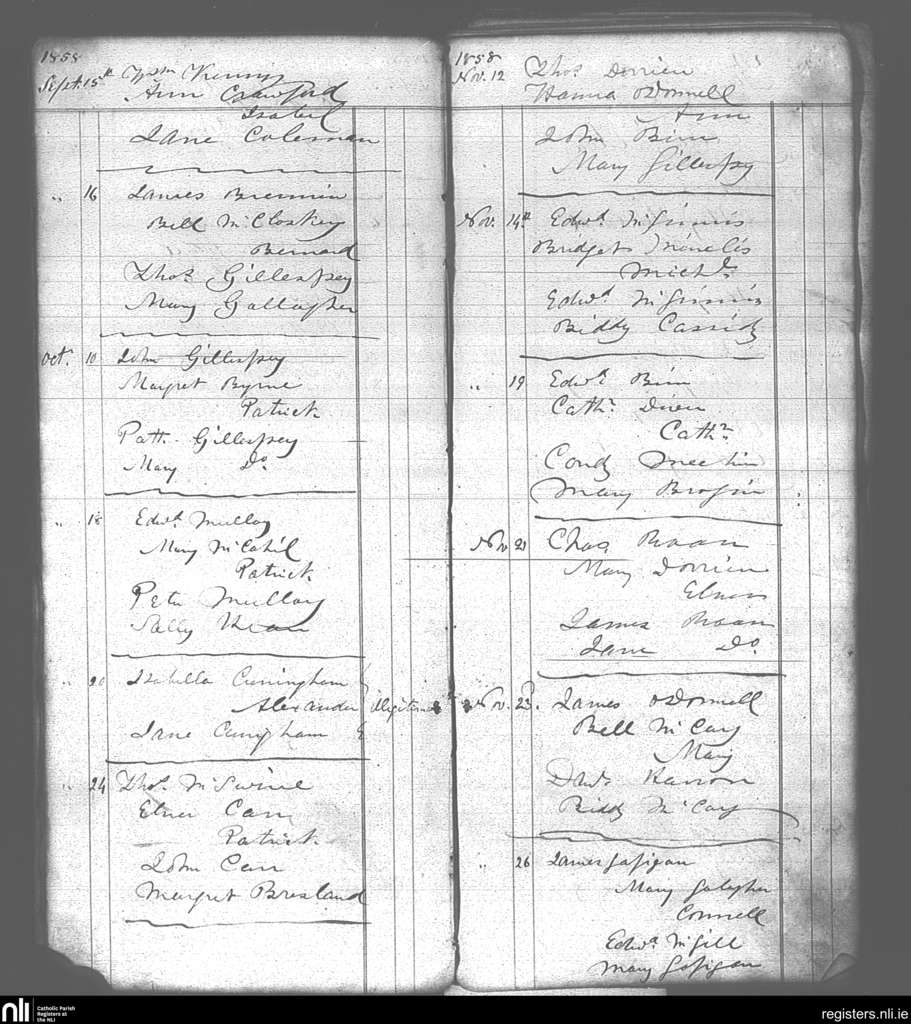 1858
Sept. 15th Wm Kenny
Ann Crawford
Isabel
Jane Coleman
" 16 James Brennin
Bell McCloskey
Bernard
Thos Gillespey
Mary Gallagher
Oct. 10 John Gillespey
Margret Byrne
Patrick
Patt. Gillespey
Mary Do
" 18 Edwd Mulloy
Mary McCahil
Patrick
Peter Mulloy
Sally
" 20 Isabella Cuningham
Alexander illegitimate
Jane Cungham
" 24 Thos McSwine
Elner Carr
Patrick
John Carr
Margret Bresland
1858
Nov. 12 Thos Dorrien
Hanna ODonnell
Ann
John Birn
Mary Gillespy
Nov. 14th Edwd McGinnis
Bridget
Michl
Edwd McGinnis
Biddy Cassidy
" 19 Edwd Birn
Cathn
Cathn
Condy Meehin
Mary Brogin
Nov 21 Chas Roan
Mary Dorrien
Elner
James Roan
Jane Do
Nov. 23. James ODonnell
Bell McCay
Mary
Danl
Biddy McCay
" 26 James Gafigan
Mary Galagher
Connell
Edwd McGill
Mary Gafigan
nli Catholic Parish
Registers at
the NLI
registers.nli.ie